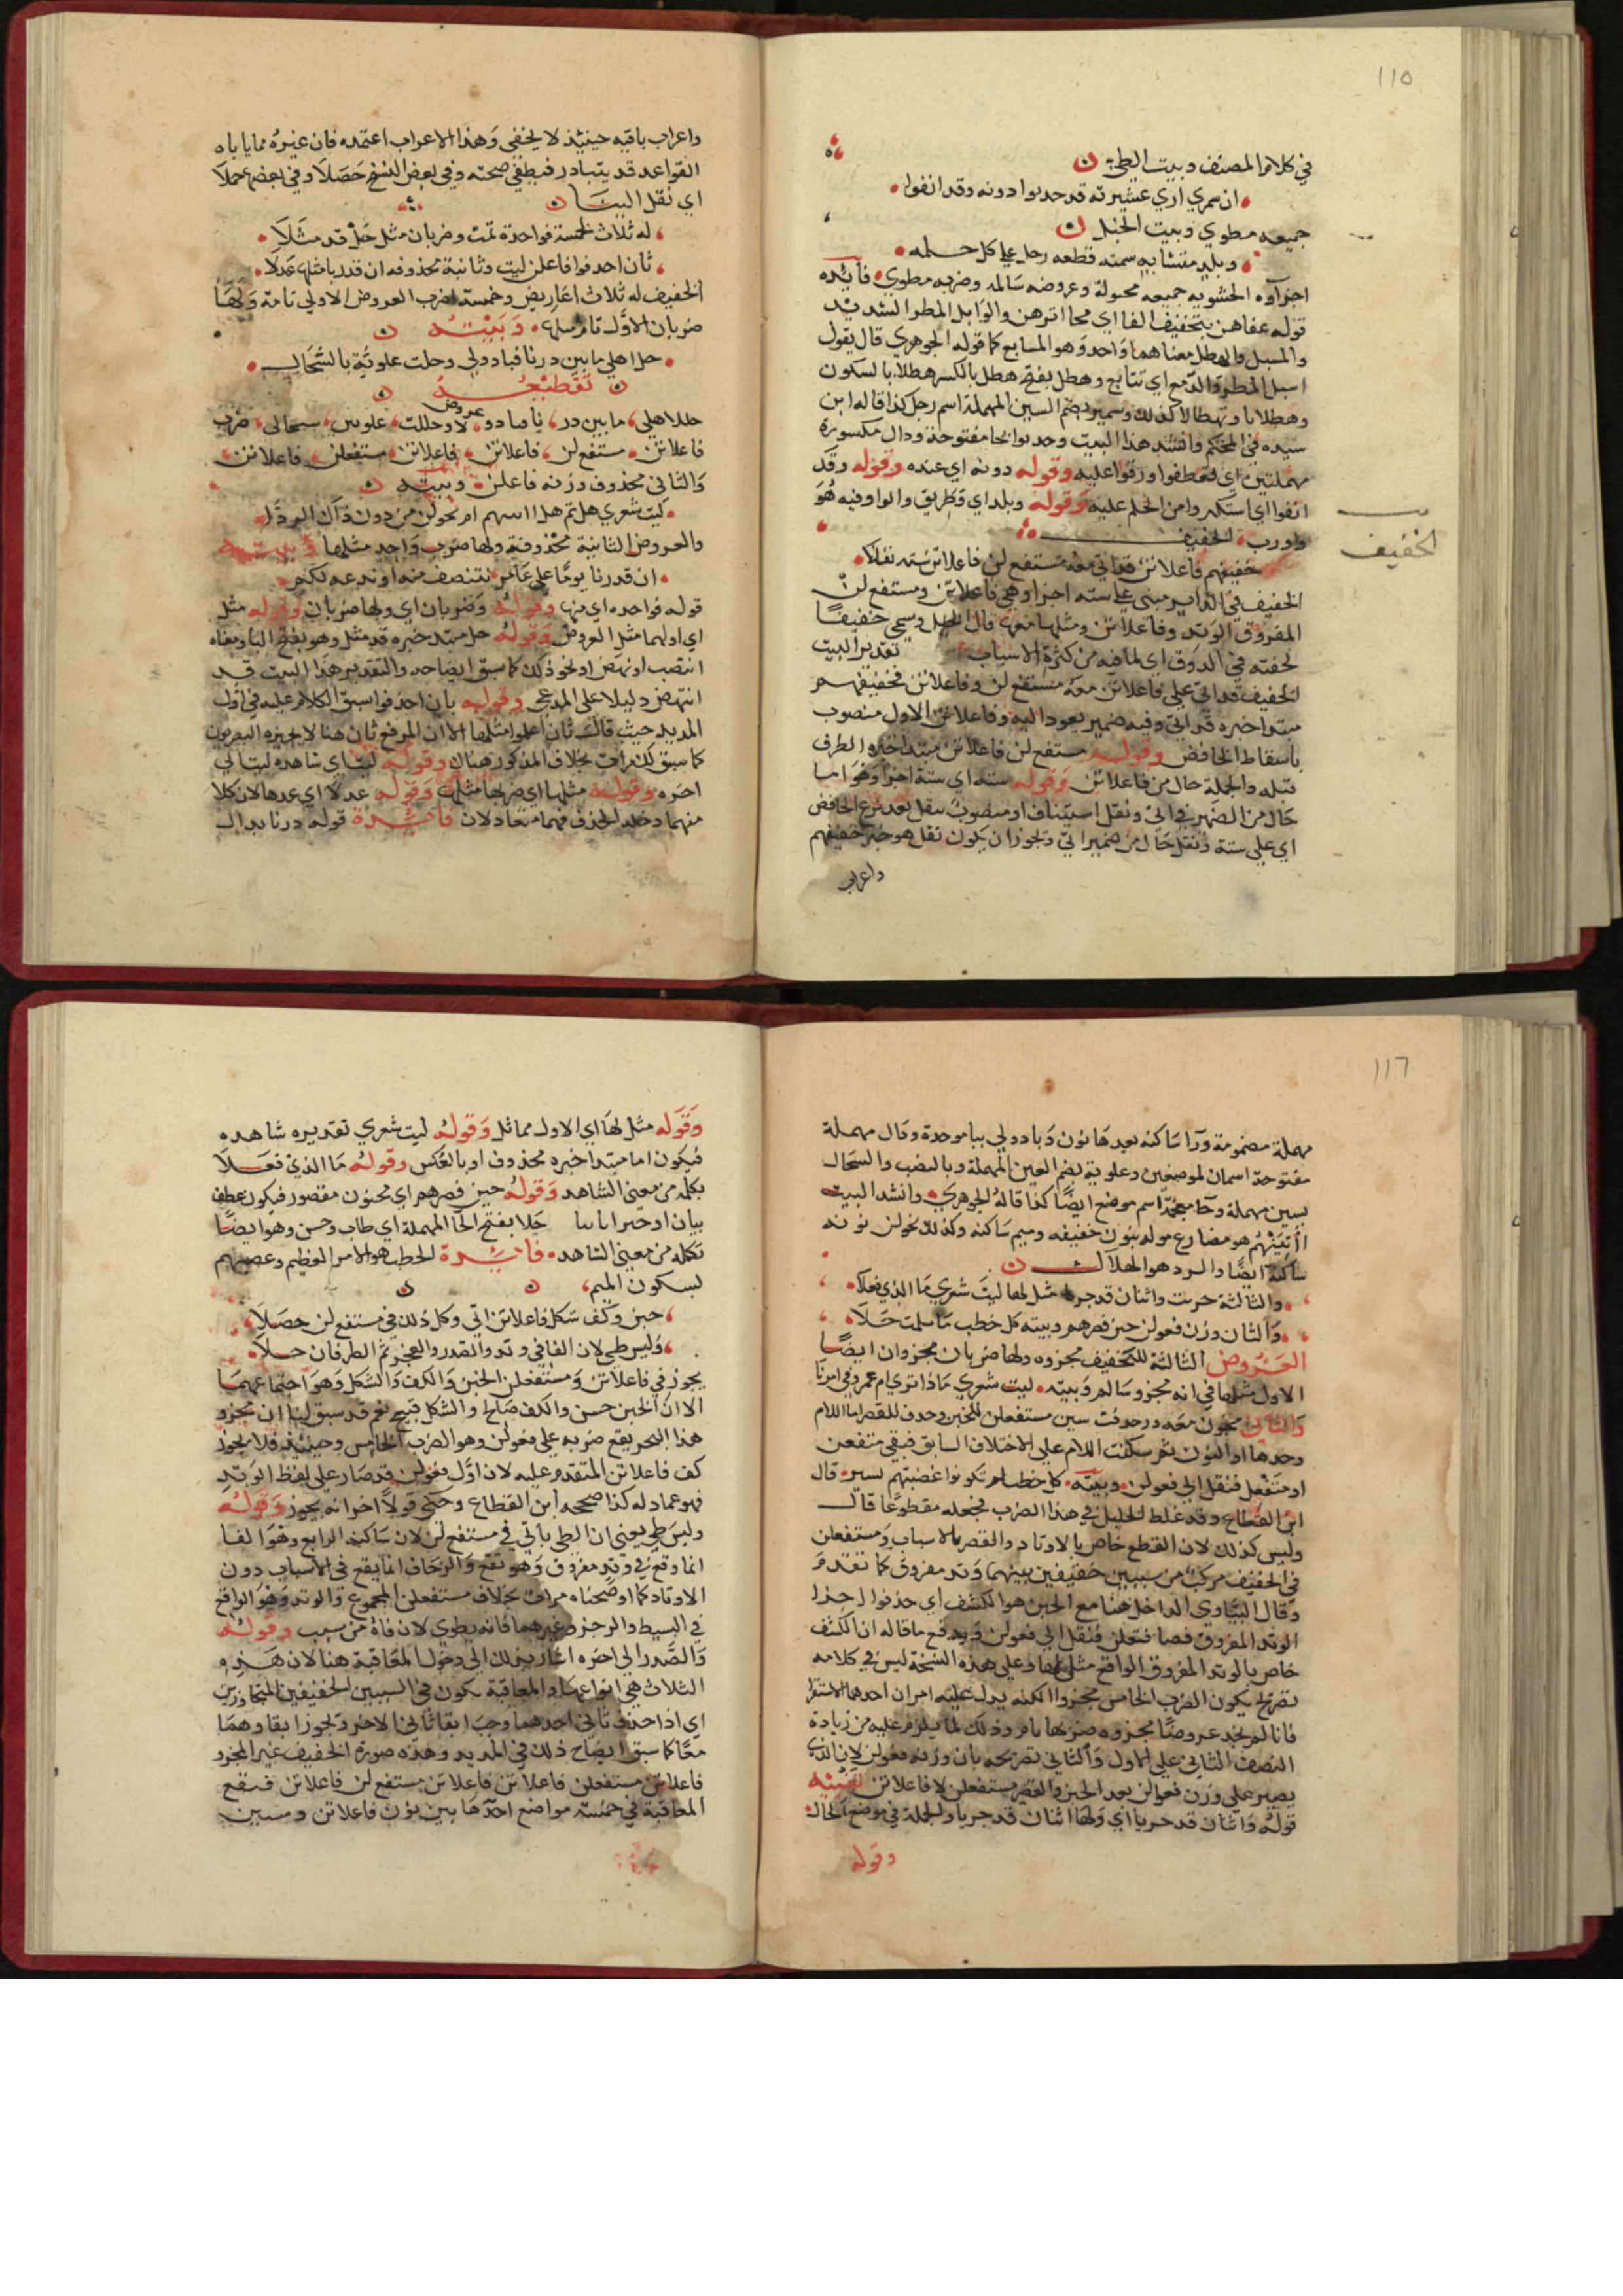 ١١٥
في كلام المصنف وبيت الطي
ان سمري اري عشيرته قد حدبوا دونه وقد انفوا
جميعه مطوي وبيت الخبل
وبلد متشابه سمته قطعه رجل علي كل جمله
اجزاوه الحشويه جميعه مخبولة وعروضه سالمه وضربه مطوي فايده
قوله عفاهن بتخفيف الفا اي محا اثرهن والوابل المطر الشديد
والمسبل والهطل معناهما واحد وهو المتتابع كما قوله الجوهري قال يقول
اسبل المطر والدمع اي تتابع وهطل بفتح هطل بالكسر هطلا بالسكون
وهطلانا وتهطالا كذلك وسمير بضم السين المهملة اسم رجل كذا قاله ابن
سيده في المحكم وانشد هذا البيت وحدبوا بحا مفتوحة ودال مكسورة
مهملتين اي تعطفوا ورقوا عليه وقوله دونه اي عنده وقوله وقد
انفوا اي استكبروا من الحلم عليه وقوله وبلد اي وطريق والواو فيه هو
واو رب الخفيف
الخفيف
خفيفهم فاعلاتن قد اتي معه مستفع لن فاعلاتن سته نقلا
الخفيف في الداير مبني علي سته اجزا وهي فاعلاتن ومستفع لن
المفروق الوتد وفاعلاتن ومثلها معها قال الخليل وسمي خفيفا
لخفته في الذوق اي لما فيه من كثرة الاسباب تقدير البيت
الخفيف قد اتي علي فاعلاتن معه مستفع لن وفاعلاتن فخفيفهم
مبتدا خبره قد اتي وفيه ضمير يعود اليه وفاعلاتن الاول منصوب
باسقاط الخافض وقوله مستفع لن فاعلاتن مبتدا خبره الظرف
قبله والجملة حال من فاعلاتن وقوله سته اي ستة اجزا وهو اما
حال من الضمير في اتي ونقل استيناف او منصوب بنقل بعد نزع الخافض
اي علي ستة ونقل حال من ضمير اتي وتجوز ان يكون نقل هو خبر خفيفهم
واعراب
واعراب باقيه حينيذ لا يخفي وهذا الاعراب اعتمده فان غيره مما ياباه
القواعد قد يتبادر فيظن صحته وفي بعض النسخ حصلا وفي بعضها عملا
اي نقل البيتا
له ثلاث لخمسة فواحدة تمت وضربان مثل حل قد مثلا
ثان احذفوا فاعلن ليت وثانية محذوفه ان قدرنا مثلها عدلا
الخفيف له ثلاث اعاريض وخمسة اضرب العروض الاولي تامة ولها
ضربان الاول تام مثلها وبيته
حل اهلي ما بين درنا فبادولي وحلت علوية بالسخال
تقطيعه
حللاهلي ما بين در نا فبادو لا وحللت علوين سخالي ضرب
عروض
فاعلاتن مستفع لن فاعلاتن فاعلاتن مستفعلن فاعلاتن
والثاني محذوف وزنه فاعلن وبيته
ليت شعري هل ثم هل اتينهم ام يحولن من دون ذاك الردا
والعروض الثانية محذوفة ولها ضرب واحد مثلها وبيته
ان قدرنا يوما علي عامر ننتصف منه او ندعه لكم
قوله فواحده اي منها وقوله وضربان اي ولها ضربان وقوله مثل
اي اولهما مثل العروض وقوله حل مبتدا خبره قد مثل وهو بفتح الثا ومعناه
انتصب او نهض او نحو ذلك كما سبق ايضاحه والتقدير هذا البيت قد
انتهض دليلا علي المدعي وقوله بان احذفوا سبق الكلام عليه في اول
المديد حيث قال ثان اعلوا مثلها الا ان الرفع ثان هنا لا يجيزه البصريون
كما سبق لك مرات بخلاف المذكور هناك وقوله ليت اي شاهده ليت الي
اخره وقوله مثلها اي ضربها مثلها وقوله عدلا اي عدها لان كلا
منهما دخله الحذف فهما متعادلان فايدة قوله درنا بدال
١١٦
مهملة مضمومة ورا ساكنه بعدها نون وبادولي ببا موحدة ودال مهملة
مفتوحة اسمان لموضعين وعلوية بضم العين المهملة وبالنصب والسخال
بسين مهملة وخا معجمة اسم موضع ايضا كذا قاله الجوهري وانشد البيت
اأتينهم هو مضارع موله بنون خفيفه وميم ساكنه وكذلك يحولن نونه
ساكنة ايضا والردا هو الهلاك
والثالثة جزيت واثنان قد جريا مثل لها ليت شعري ما الذي فعلا
والثان وزن فعولن حين قصرهم وبيته كل خطب ما سلمت حلا
العروض الثالثة للخفيف مجزوه ولها ضربان مجزوان ايضا
الاول مثلها في انه مجزو سالم وبيته ليت شعري ماذا تري ام عمرو في امرنا
والثاني مخبون معه وحذفت سين مستفعلن للخبن وحذف للقصر اما اللام
وحدها او النون ثم سكنت اللام علي الاختلاف السابق فبقي متفعن
او متفعل فنقل الي فعولن وبيته كل خطب ان لم تكونوا غضبتم يسير قال
ابن القطاع وقد غلط الخليل في هذا الضرب فجعله مقطوعا قال
وليس كذلك لان القطع خاص بالاوتاد والقصر بالاسباب ومستفعلن
في الخفيف مركب من سببين خفيفين بينهما وتد مفروق كما تقدم
وقال البيناوي الداخل هنا مع الخبن هو الكشف اي حذفوا اخر
الوتد المفروق فصار متعلن فنقل الي فعولن ويدفع ما قاله ان الكشف
خاص بالوتد المفروق الواقع مثل لها وعلي هذه النسخة ليس في كلامه
تصريح بكون الضرب الخامس مجزوا لكنه يدل عليه امران احدهما الاستقرا
فانا لم نجد عروضا مجزوه ضربها تام وذلك لما يلزم عليه من زيادة
النصف الثاني علي الاول والثاني تصريحه بان وزنه فعولن لان الذي
يصير علي وزن فعولن بعد الخبن والقصر مستفعلن لا فاعلاتن تنبيه
قوله واثنان قد جريا اي ولها اثنان قد جريا والجملة في موضع الحال
وقوله
وقوله مثل لها اي الاول مماثل وقوله ليت شعري تقديره شاهده
فيكون اما مبتدا خبره محذوف او بالعكس وقوله ما الذي فعلا
بكله من معني الشاهد وقوله حين قصرهم اي مخبون مقصور فيكون عطف
بيان او خبرا ثانيا حلا بفتح الحا المهملة اي طاب وحسن وهو ايضا
تكمله من معني الشاهد فايدة الخطب هو الامر العظيم وغضبتم
بسكون الميم
خبن وكف شكل فاعلاتن اتي وكل ذلك في مستفع لن حصلا
وليس طي لان الفا في وتد والصدر والعجز ثم الطرفان حلا
يجوز في فاعلاتن ومستفعلن الخبن والكف والشكل وهو اجتماعهما
الا ان الخبن حسن والكف صالح والشكل قبيح نعم قد سبق لنا ان مجزو
هذا البحر يقع ضربه علي فعولن وهو الضرب الخامس وحينيذ فلا يجوز
كف فاعلاتن المتقدم عليه لان اول فعولن قد صار علي لفظ الوتد
فهو عماد له كذا صححه ابن القطاع وحكي قولا اخر انه يجوز وقوله
وليس طي يعني ان الطي ياتي في مستفع لن لان ساكنه الرابع وهو الفا
انما وقع في وتد مفروق وهو تفع والزحاف انما يقع في الاسباب دون
الاوتاد كما اوضحناه مرات بخلاف مستفعلن المجموع والوتد وهو الواقع
في البسيط والرجز وغيرهما فانه يطوي لان فاه من سبب وقوله
والصدر الي اخره اشار بذلك الي دخول المعاقبة هنا لان هذه
الثلاث هي انواعها والمعاقبة تكون في السببين الخفيفين المتجاورين
اي اذا حذف ثاني احدهما وجب ابقا ثاني الاخر وتجوز ابقاوهما
معا كما سبق ايضاح ذلك في المديد وهذه صورة الخفيف غير المجزو
فاعلاتن مستفعلن فاعلاتن فاعلاتن مستفع لن فاعلاتن فتقع
المعاقبة في خمسة مواضع احدها بين نون فاعلاتن وسين